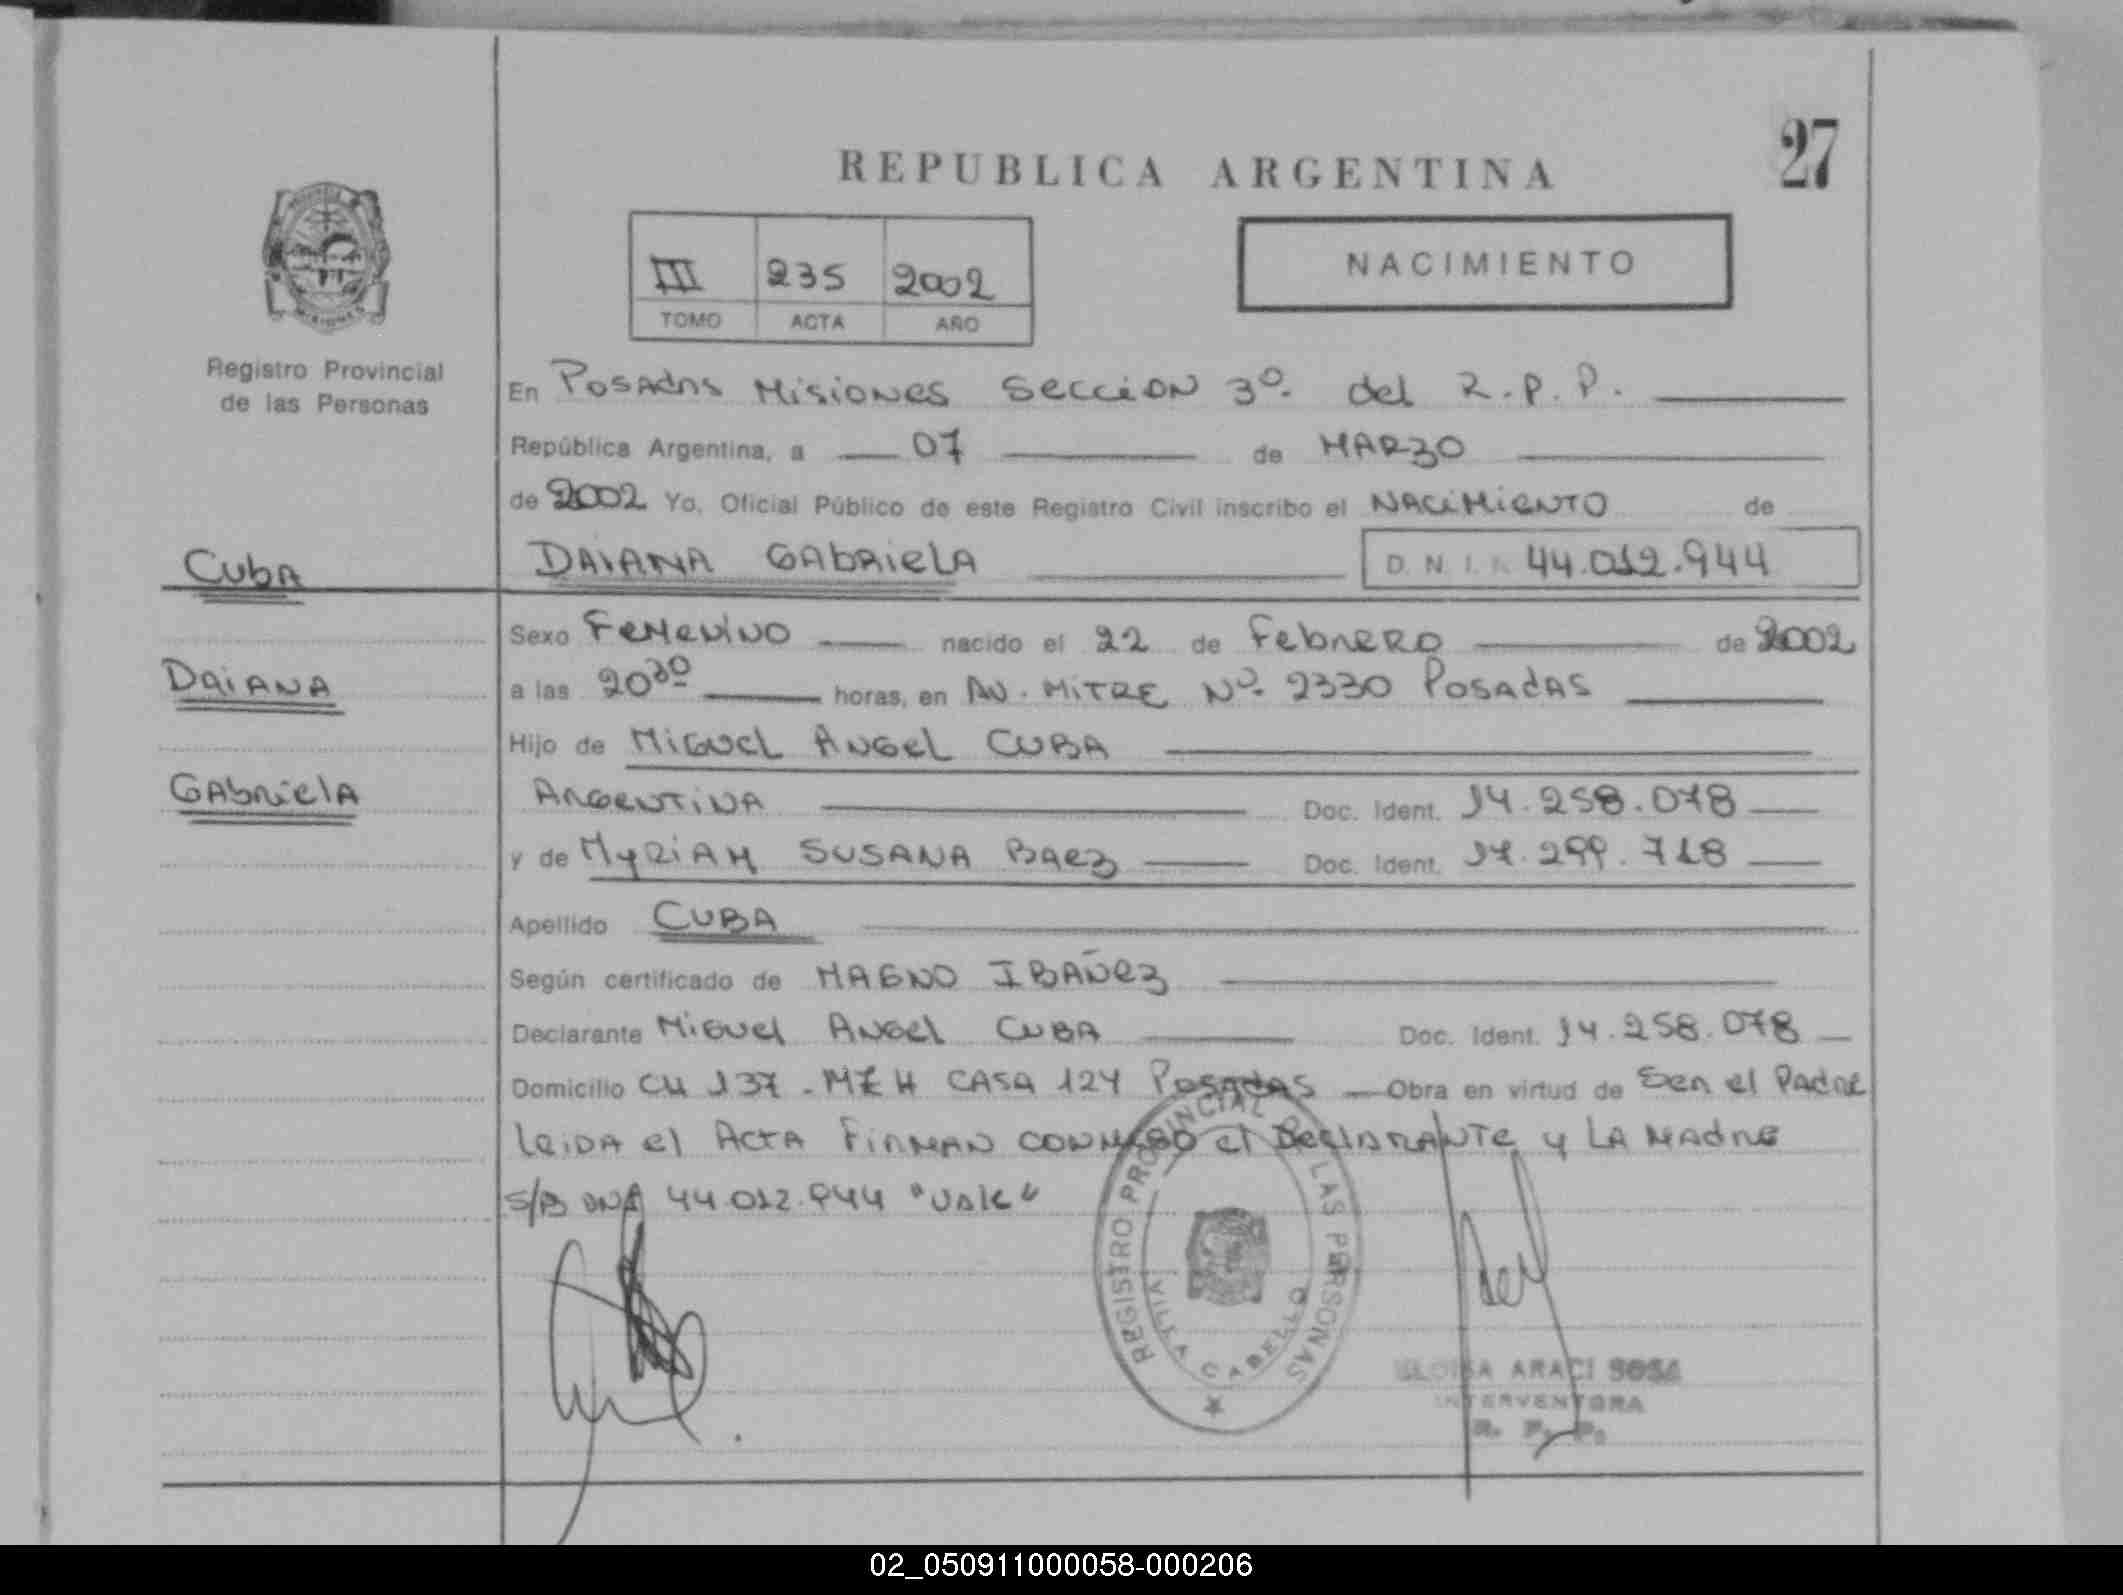 27
REPUBLICA ARGENTINA
III 235 2002
TOMO ACTA AÑO
NACIMIENTO
MISIONES
Registro Provincial
de las Personas
En Posadas Misiones Sección 3º. del R.P.P.
República Argentina, a 07 de MARZO
de 2002 Yo, Oficial Público de este Registro Civil inscribo el NACIMIENTO de
Cuba DAIANA GABRIELA D. N. I. 44.012.944
Sexo Femenino nacido el 22 de Febrero de 2002
Daiana a las 20³⁰ horas, en Av. MITRE Nº. 2330 Posadas
Hijo de Miguel Angel CUBA
Gabriela ARGENTINA Doc. Ident. 14.258.078
y de Myriam SUSANA Baez Doc. Ident. 17.299.718
Apellido CUBA
Según certificado de MAGNO IBAÑEZ
Declarante Miguel Angel CUBA Doc. Ident. 14.258.078
Domicilio CH 137 - MZ H CASA 124 Posadas Obra en virtud de Ser el Padre
leida el Acta Firman conmigo el Declarante y LA Madre
S/B DNI 44.012.944 "Vale"
REGISTRO PROVINCIAL DE LAS PERSONAS
VILLA CABELLO
ELOISA ARACI SOSA
INTERVENTORA
R. P. P.
02_050911000058-000206